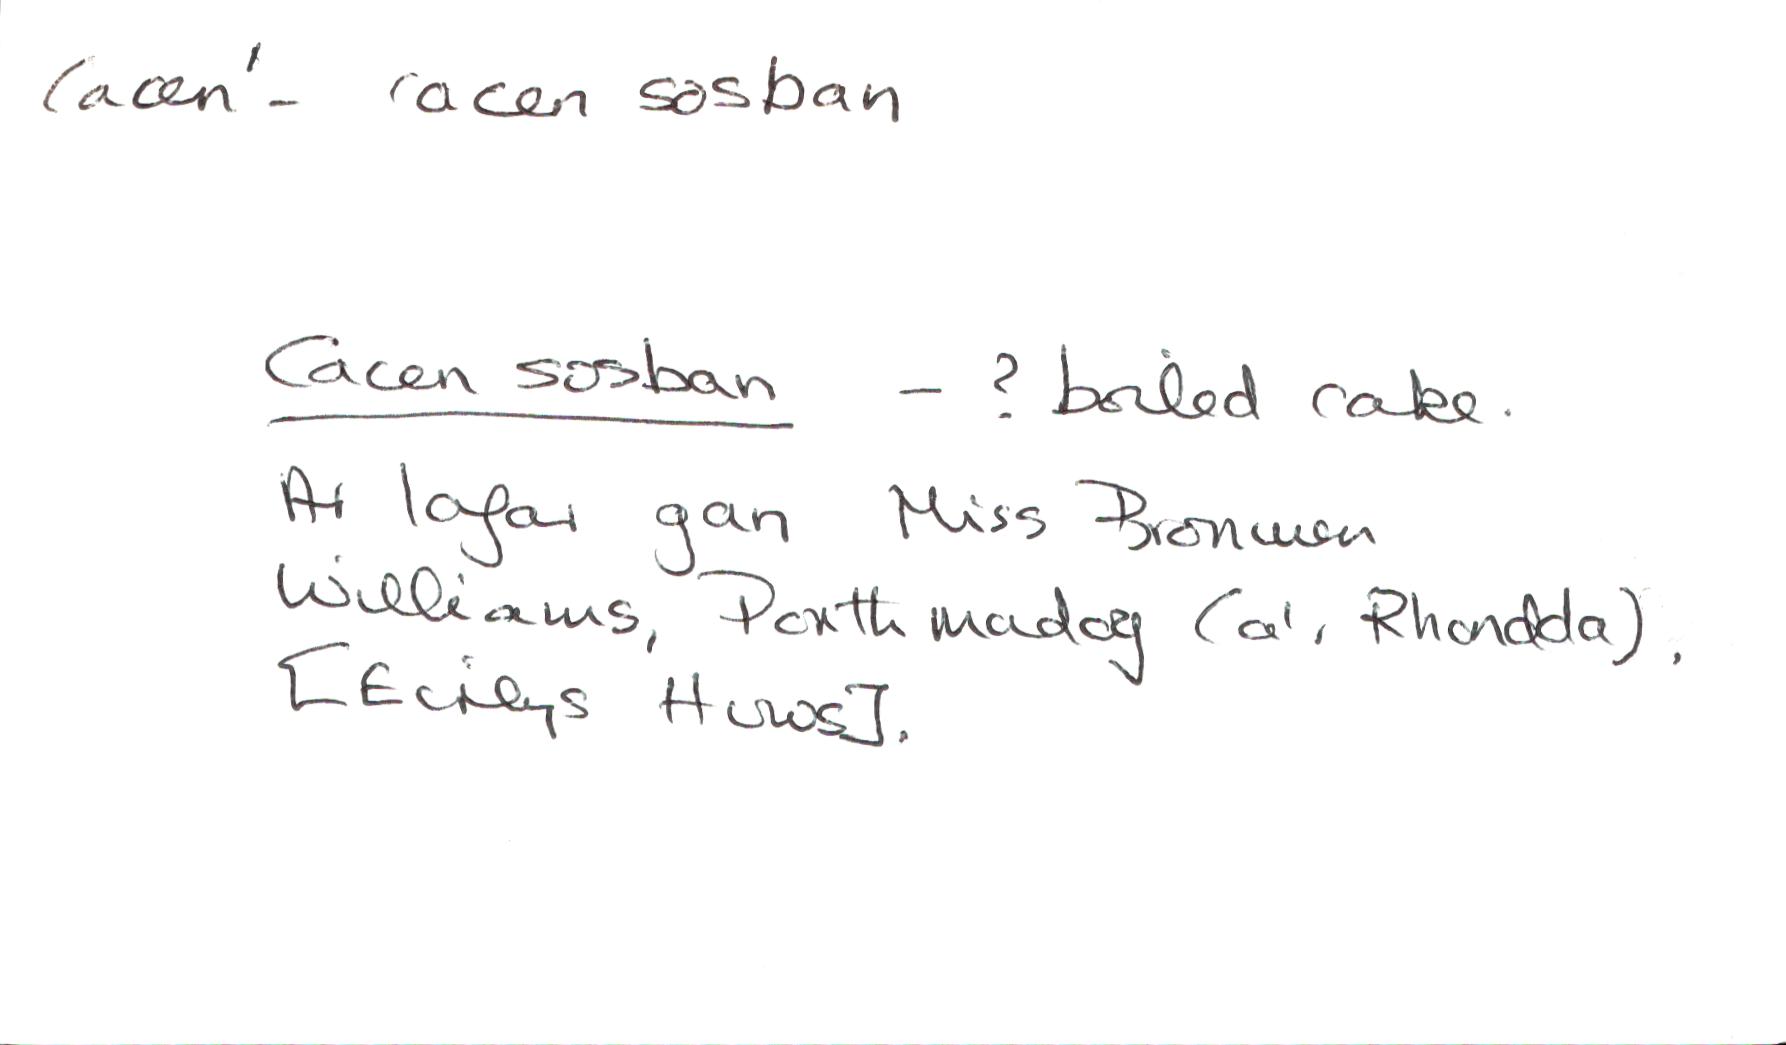 Cacen¹ - cacen sosban
Cacen sosban - ? boiled cake.
Ar lafar gan Miss Bronwen
Williams, Porthmadog (a'r Rhondda).
[Ecilys Huws].